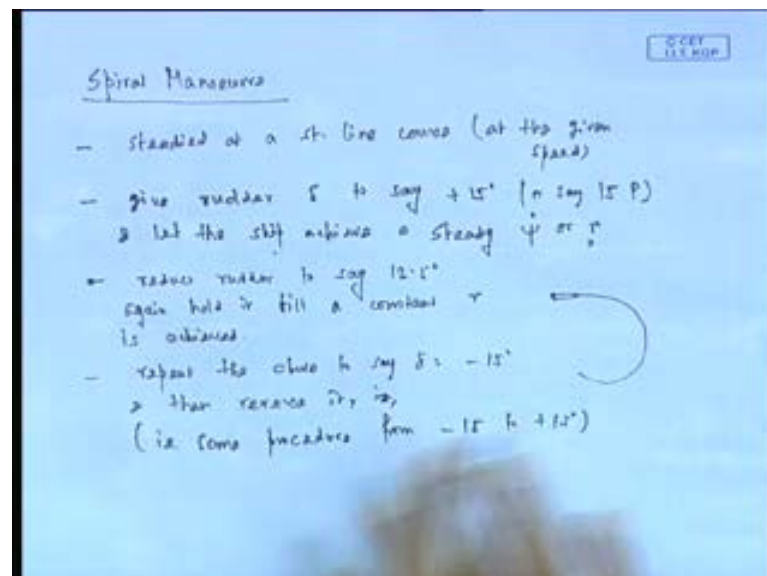 © CET
I.I.T. KGP
Spiral Manoeuvre
- steadied at a st. line course (at the given
speed)
- give rudder δ to say +15° (or say 15 P)
& let the ship achieve a steady ψ̇ or r
- reduce rudder to say 12.5°
again hold it till a constant r
is achieved
- repeat the above to say δ = -15°
& then reverse it,
(ie same procedure from -15 to +15°)